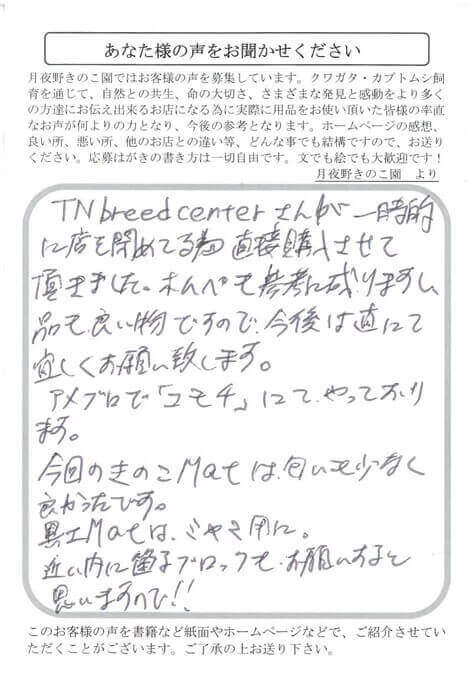 あなた様の声をお聞かせください
月夜野きのこ園ではお客様の声を募集しています。クワガタ・カブトムシ飼
育を通じて、自然との共生、命の大切さ、さまざまな発見と感動をより多く
の方達にお伝え出来るお店になる為に実際に用品をお使い頂いた皆様の率直
なお声が何よりの力となり、今後の参考となります。ホームページの感想、
良い所、悪い所、他のお店との違い等、どんな事でも結構ですので、お送り
ください。応募はがきの書き方は一切自由です。文でも絵でも大歓迎です！
月夜野きのこ園　より
TN breed centerさんが一時的
に店を閉めてる為 直接購入させて
頂きました。ホムペも参考に成りますし、
品も良い物ですので、今後は直にて
宜しくお願い致します。
アメブロで「ユモチ」にて、やっており
ます。
今回のきのこMatは、匂いも少なく
良かったです。
黒土Matは、ミヤマ用に。
近い内に菌糸ブロックも、お願いすると
思いますので!!
このお客様の声を書籍など紙面やホームページなどで、ご紹介させてい
ただくことがございます。ご了承の上お送り下さい。